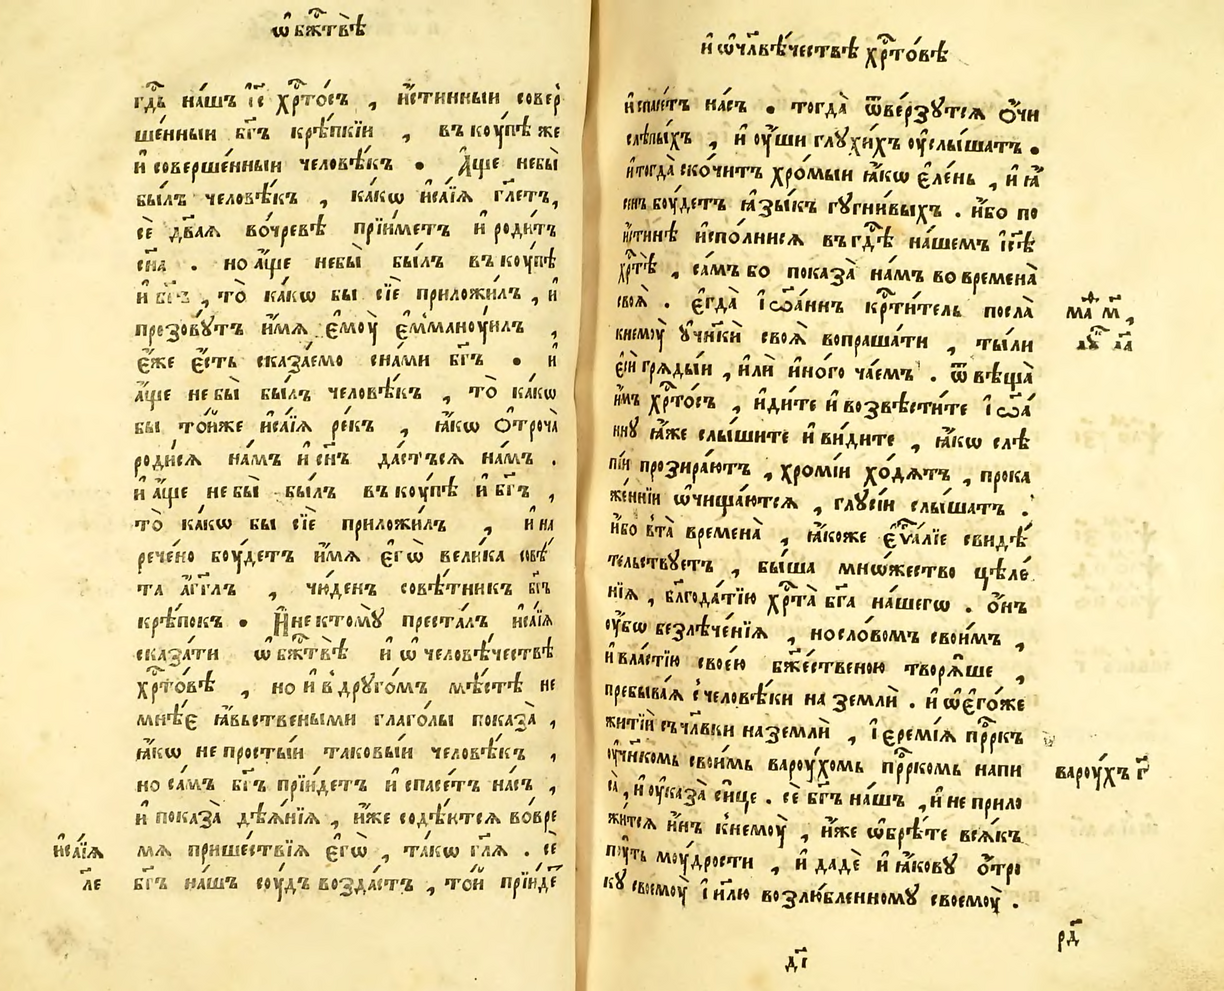 ѡ҆ бж҇твѣ
гд҇ь на́шъ і҆с҃ хр҇то́съ , и҆́стинныи совер
ше́нныи бг҃ъ крѣ́пкїи , в̾коу́пѣ же
и҆ соверше́нныи человѣ́къ . А҆́ще небы̀
бы́лъ человѣ́къ , ка́кѡ и҆са́їа гл҃етъ,
сѐ два́ѧ во́чревѣ прїи́метъ и҆ роди́тъ
сн҃а . но а҆́ще небы̀ бы́лъ в̾коу́пѣ
и҆ бг҃ъ , то̀ ка́кѡ бы сїѐ приложи́лъ , и҆
презову́тъ и҆́мѧ є҆моу̀ є҆м̾мануи́лъ ,
є҆́же є҆́сть сказа́емо сна́ми бг҃ъ . и҆
а҆́ще не бы̀ бы́лъ человѣ́къ , то̀ ка́кѡ
бы то́йже и҆са́їѧ ре́къ , ꙗ҆́кѡ о҆троча̀
роди́сѧ на́мъ и҆ сн҃ъ да́стъсѧ на́мъ .
и҆ а҆́ще не бы̀ бы́лъ в̾коу́пѣ и҆ бг҃ъ ,
то̀ ка́кѡ бы сїѐ приложи́лъ , и҆ на
рече́но боу́детъ и҆́мѧ є҆гѡ̀ вели́ка совѣ́
та а҆́гг҃лъ , чю́денъ совѣ́тникъ бг҃ъ
крѣ́покъ . И҆ не ктомꙋ̀ преста́лъ и҆са́їѧ
сказа́ти ѡ҆ бж҇твѣ̀ и҆ ѡ҆ человѣ́чествѣ
хр҇то́вѣ , но и҆ в̾дрꙋго́мъ мѣ́стѣ не
мнѣ́е ꙗ҆́вьствеными глаго́лы показа̀ ,
ꙗ҆́кѡ не просты́й таковы́й человѣ́къ ,
но са́мъ бг҃ъ прїи́детъ и҆ спасе́тъ на́съ ,
и҆ показа̀ дѣѧ́нїѧ , и҆́же содѣ́ютсѧ во́вре
и҆са́їѧ мѧ прише́ствїѧ є҆гѡ̀ , та́кѡ гл҃ѧ . сѐ
л҃е бг҃ъ на́шъ соу́дъ возда́стъ , то́й прїи́де
и҆ ѡ҆ чл҃вѣ́чествѣ хр҇то́вѣ
и҆ спасе́тъ на́съ . тогда̀ ѿве́рзꙋтсѧ о҆́чи
слѣпы́хъ , и҆ оу҆́ши глꙋхи́хъ оу҆слы́шатъ .
и҆ тогда̀ ско́читъ хро́мыи ꙗ҆́кѡ є҆ле́нь , и҆ ꙗ҆́
сенъ боу́детъ ꙗ҆зы́къ гꙋгни́выхъ . и҆́бо по
и҆́стинѣ и҆спо́лнисѧ в̾гд҇ѣ на́шемъ і҆с҃ѣ
хр҇тѣ̀ , са́мъ бо показа̀ на́мъ во времена̀
своѧ̀ . є҆гда̀ і҆ѡа́ннъ кр҇ти́тель посла̀ маѳ м҃ ,
кнемоу̀ ᲂу҆ч҃нкѝ своѧ̀ вопраша́ти , ты́ли
є҆сѝ грѧды́и , и҆лѝ и҆но́го ча́емъ . ѿвѣща̀
и҆̀мъ хр҇то́съ , и҆ди́те и҆ возвѣсти́те і҆ѡа́
ннꙋ ꙗ҆́же слы́шите и҆ ви́дите , ꙗ҆́кѡ слѣ
пі́и прозира́ютъ , хромі́и хо́дѧтъ , прока
же́ннїи ѡ҆чища́ютсѧ , глꙋсі́и слы́шатъ .
и҆́бо в̾та̀ времена̀ , ꙗ҆́коже є҆ѵⷢ҇а́лїе свидѣ́
тельствꙋетъ , бы́ша мно́жество цѣле́
нїѧ , бл҃года́тїю хр҇та̀ бг҃а на́шегѡ . о҆́нъ
оу҆́бѡ безлѣче́нїѧ , но сло́вомъ свои́мъ ,
и҆ вла́стїю свое́ю бж҃е́ственою творѧ́ше ,
пребыва́ѧ с̾человѣ́ки на землѝ . и҆ ѡ҆ є҆го́же
житїѝ съ чл҃вки на землѝ , і҆еремі́ѧ пр҇ркъ
оу҆чн҃ко́мь свои́мь вароу́хомь пр҇ркомь напи вароу́хъ г҃
са̀ , и҆ оу҆каза̀ си́це . сѐ бг҃ъ на́шъ , и҆ не прило
жи́тсѧ и҆́нъ кнемоу̀ , и҆́же ѡ҆брѣ́те всѧ́къ
пꙋ́ть моу́дрости , и҆ дадѐ и҆ ꙗ҆́ковꙋ о҆́тро
кꙋ своемоу̀ і҆ и҃лю возлю́бленномꙋ своемоу̀ .
рд҃
д҃і